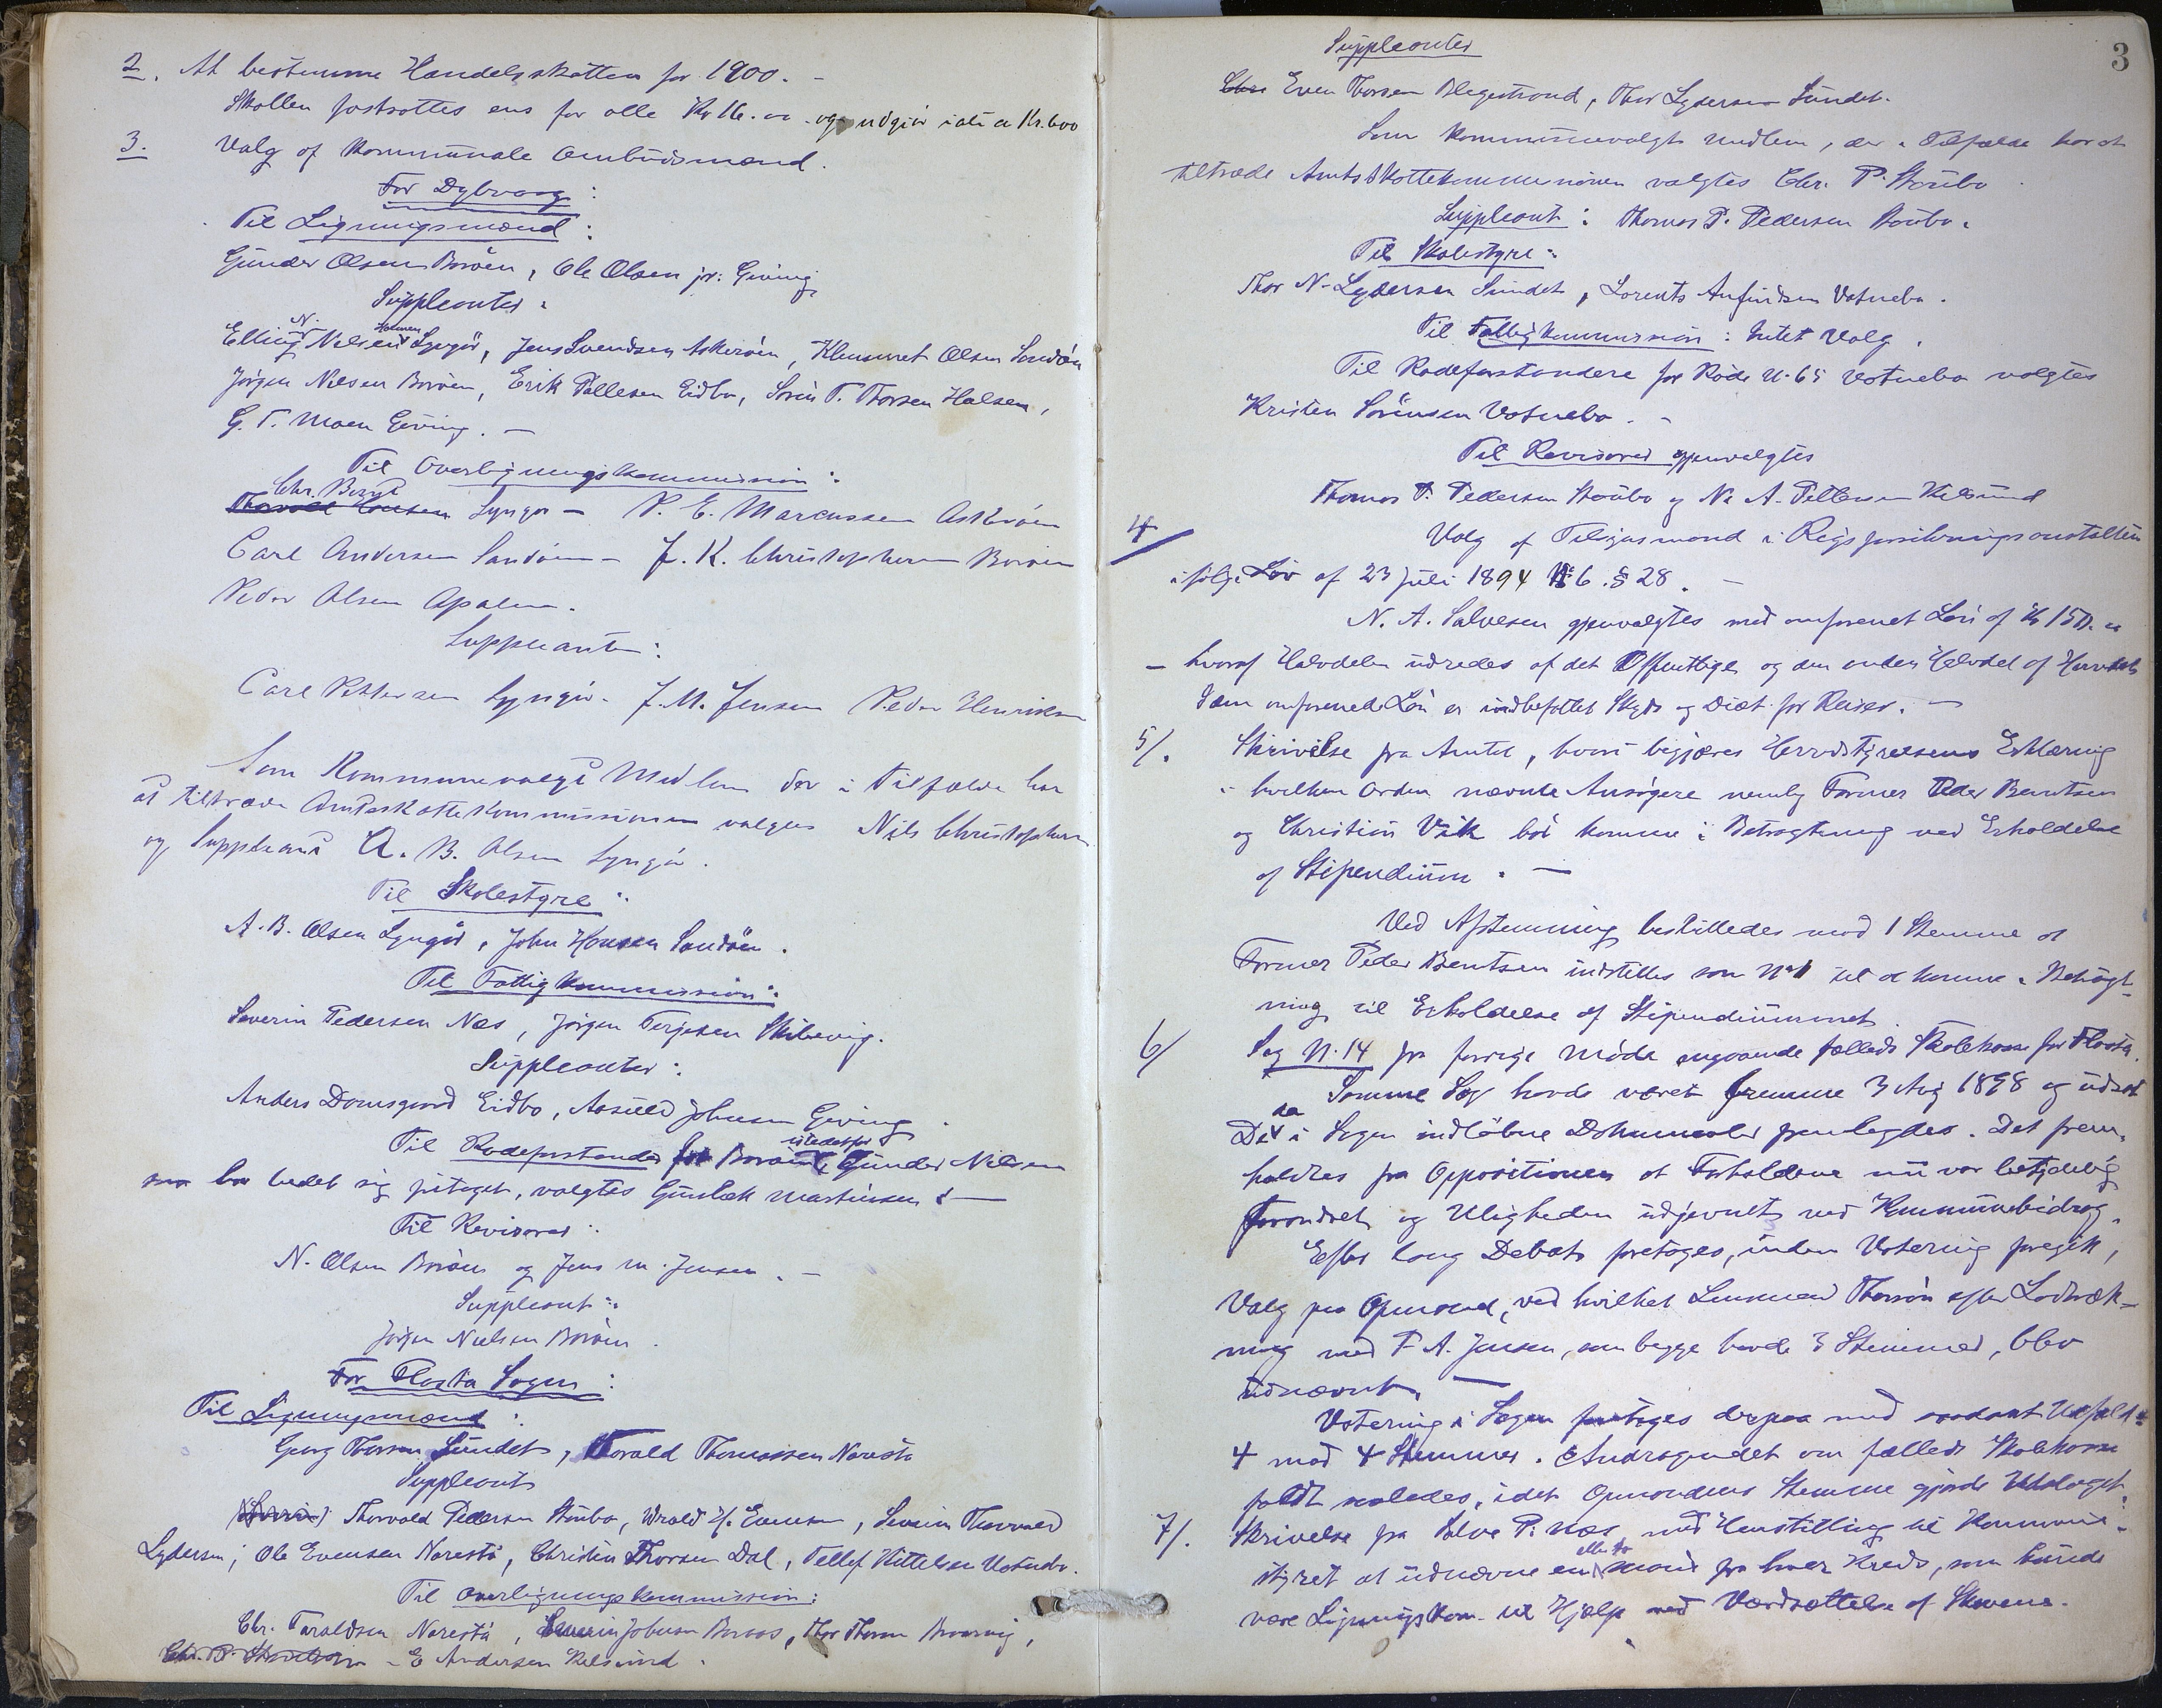 2. At bestemme Handelsskatten for 1900. -
Skatten fastsattes ens for alle Kr 16.00 - og udgiør ialt a Kr. 600
3. Valg af kommunale Ombudsmænd.
For Dybvaag:
Til Ligningsmænd:
Gunder Olsen Borøen, Ole Olsen jr. Giving
Suppleanter:
Elling N. Nilsen Holmen Lyngør, Jens Svendsen Askerøen, Klemmet Olsen Sandøen
Jørgen Nilsen Borøen, Erik Tallesen Eidbo, Søren T. Thorsen Halsen,
G. T. Moen Giving. -
Til Overligningskommission:
Chr. Bernt
Thorvald Hansen Lyngør - P. E. Marcussen Askerøen
Carl Andersen Sandøen - J. K. Christophersen Borøen
Peder Olsen Apalen.
Suppleanter:
Carl Pettersen Lyngør - J. M. Jensen Peder Henriksen
Som Kommunevalgt Medlem der i Tilfælde har
at tiltræde Amtsskattekommissionen valgtes Nils Christophersen
og Suppleant A. B. Olsen Lyngør.
Til Skolestyre:
A. B. Olsen Lyngør, John Hansen Sandøen.
Til Fattigkommission:
Severin Pedersen Næs, Jørgen Terjesen Skibevig.
Suppleanter:
Anders Domsgaard Eidbo, Aasuld Johnsen Giving.
Til Rodeforstander for Borøen, istedetfor Gunder Nilsen
som har bedet sig fritaget, valgtes Gunleik Martinsen. -
Til Revisorer:
N. Olsen Borøen og Jens M. Jensen. -
Suppleant:
Jørgen Nielsen Borøen.
For Flosta Sogn:
Til Ligningsmænd:
Georg Thorsen Sundet, Thorald Thomassen Narestø
Suppleant
Thorvald Pedersen Staubo, Wrold H. Evensen, Severin Thorvald
Lydersen, Ole Evensen Narestø, Christen Thorsen Dal, Tellef Kittelsen Vatnebo.
Til Overligningskommission:
Chr. Taraldsen Narestø, Severin Johnsen Boraas, Thor Thorsen
- E Andersen Kilsund.
3
Suppleanter
Even Thorsen Blegestrand, Thor Lydersen Sundet.
Som kommunevalgt Medlem, der i Tilfælde har at
tiltræde Amtsskattekommisionen valgtes Chr. P. Staubo.
Suppleant: Thomas P. Pedersen Staubo.
Til Skolestyre:
Thor N. Lydersen Sundet, Lorents Anfindsen Vatnebo.
Til Fattigkommission: Intet Valg.
Til Rodeforstandere for Rode N. 65 Vatnebo valgtes
Kristen Sørensen Vatnebo. -
Til Revisorer gjenvalgtes
Thomas P. Pedersen Staubo og N. A. Pettersen Kilsund
4 Valg af Tilsynsmand i Rigsforsikringsanstalten
ifølge Lov af 23 Juli 1894 N: 6. § 28. -
N. A. Salvesen gjenvalgtes med omforenet Løn af Kr 150.00
- hvoraf Halvdelen udredes af det Offentlige og den anden Halvdel af Herredet
I den omforenede Løn er indbefattet Skyds og Diæt for Reiser. -
5/. Skrivelse fra Amtet, hvori begjæres Herredstyrelsens Erklæring
i hvilken Orden nævnte Ansøgere nemlig Farmer Peder Berntsen
og Christian Vik bør komme i Betragtning ved Erholdelse
af Stipendium. -
Ved Afstemning besluttedes mod 1 Stemme at
Farmer Peder Berntsen indstilles som N: 1 til at komme i Betragt-
ning til Erholdelse af Stipendiummet.
6/ Sag N. 14 fra forrige Møde angaaende fælleds Skolekasse for Flosta.
Samme Sag havde været fremme 3 Aug 1898 og udsat
De i Sagen indløbne Dokumenter fremlagdes. Det frem-
holdtes fra Oppositionen at Forholdene nu var betydelig
forandret og Uligheden udjevnet ved Kommunebidrag.
Efter lang Debat foretoges, inden Votering foregik,
Valg paa Opmand, ved hvilket Lensmand Thorsøn efter Lodtræk-
ning med F. A. Jensen, som begge havde 3 Stemmer, blev
udnævnt. -
Votering i Sagen foretoges derpaa med saadant Udfald:
4 mod 4 Stemmer. Andragendet om fælleds Skolekasse
faldt saaledes, idet Opmandens Stemme gjorde Udslaget.
7/. Skrivelse fra Salve P. Næs med Henstilling til Kommune-
styret at udnævne en eller to Mand fra hver Kreds, som kunde
være Ligningskom. til Hjælp ved Værdsættelse af Skovene.